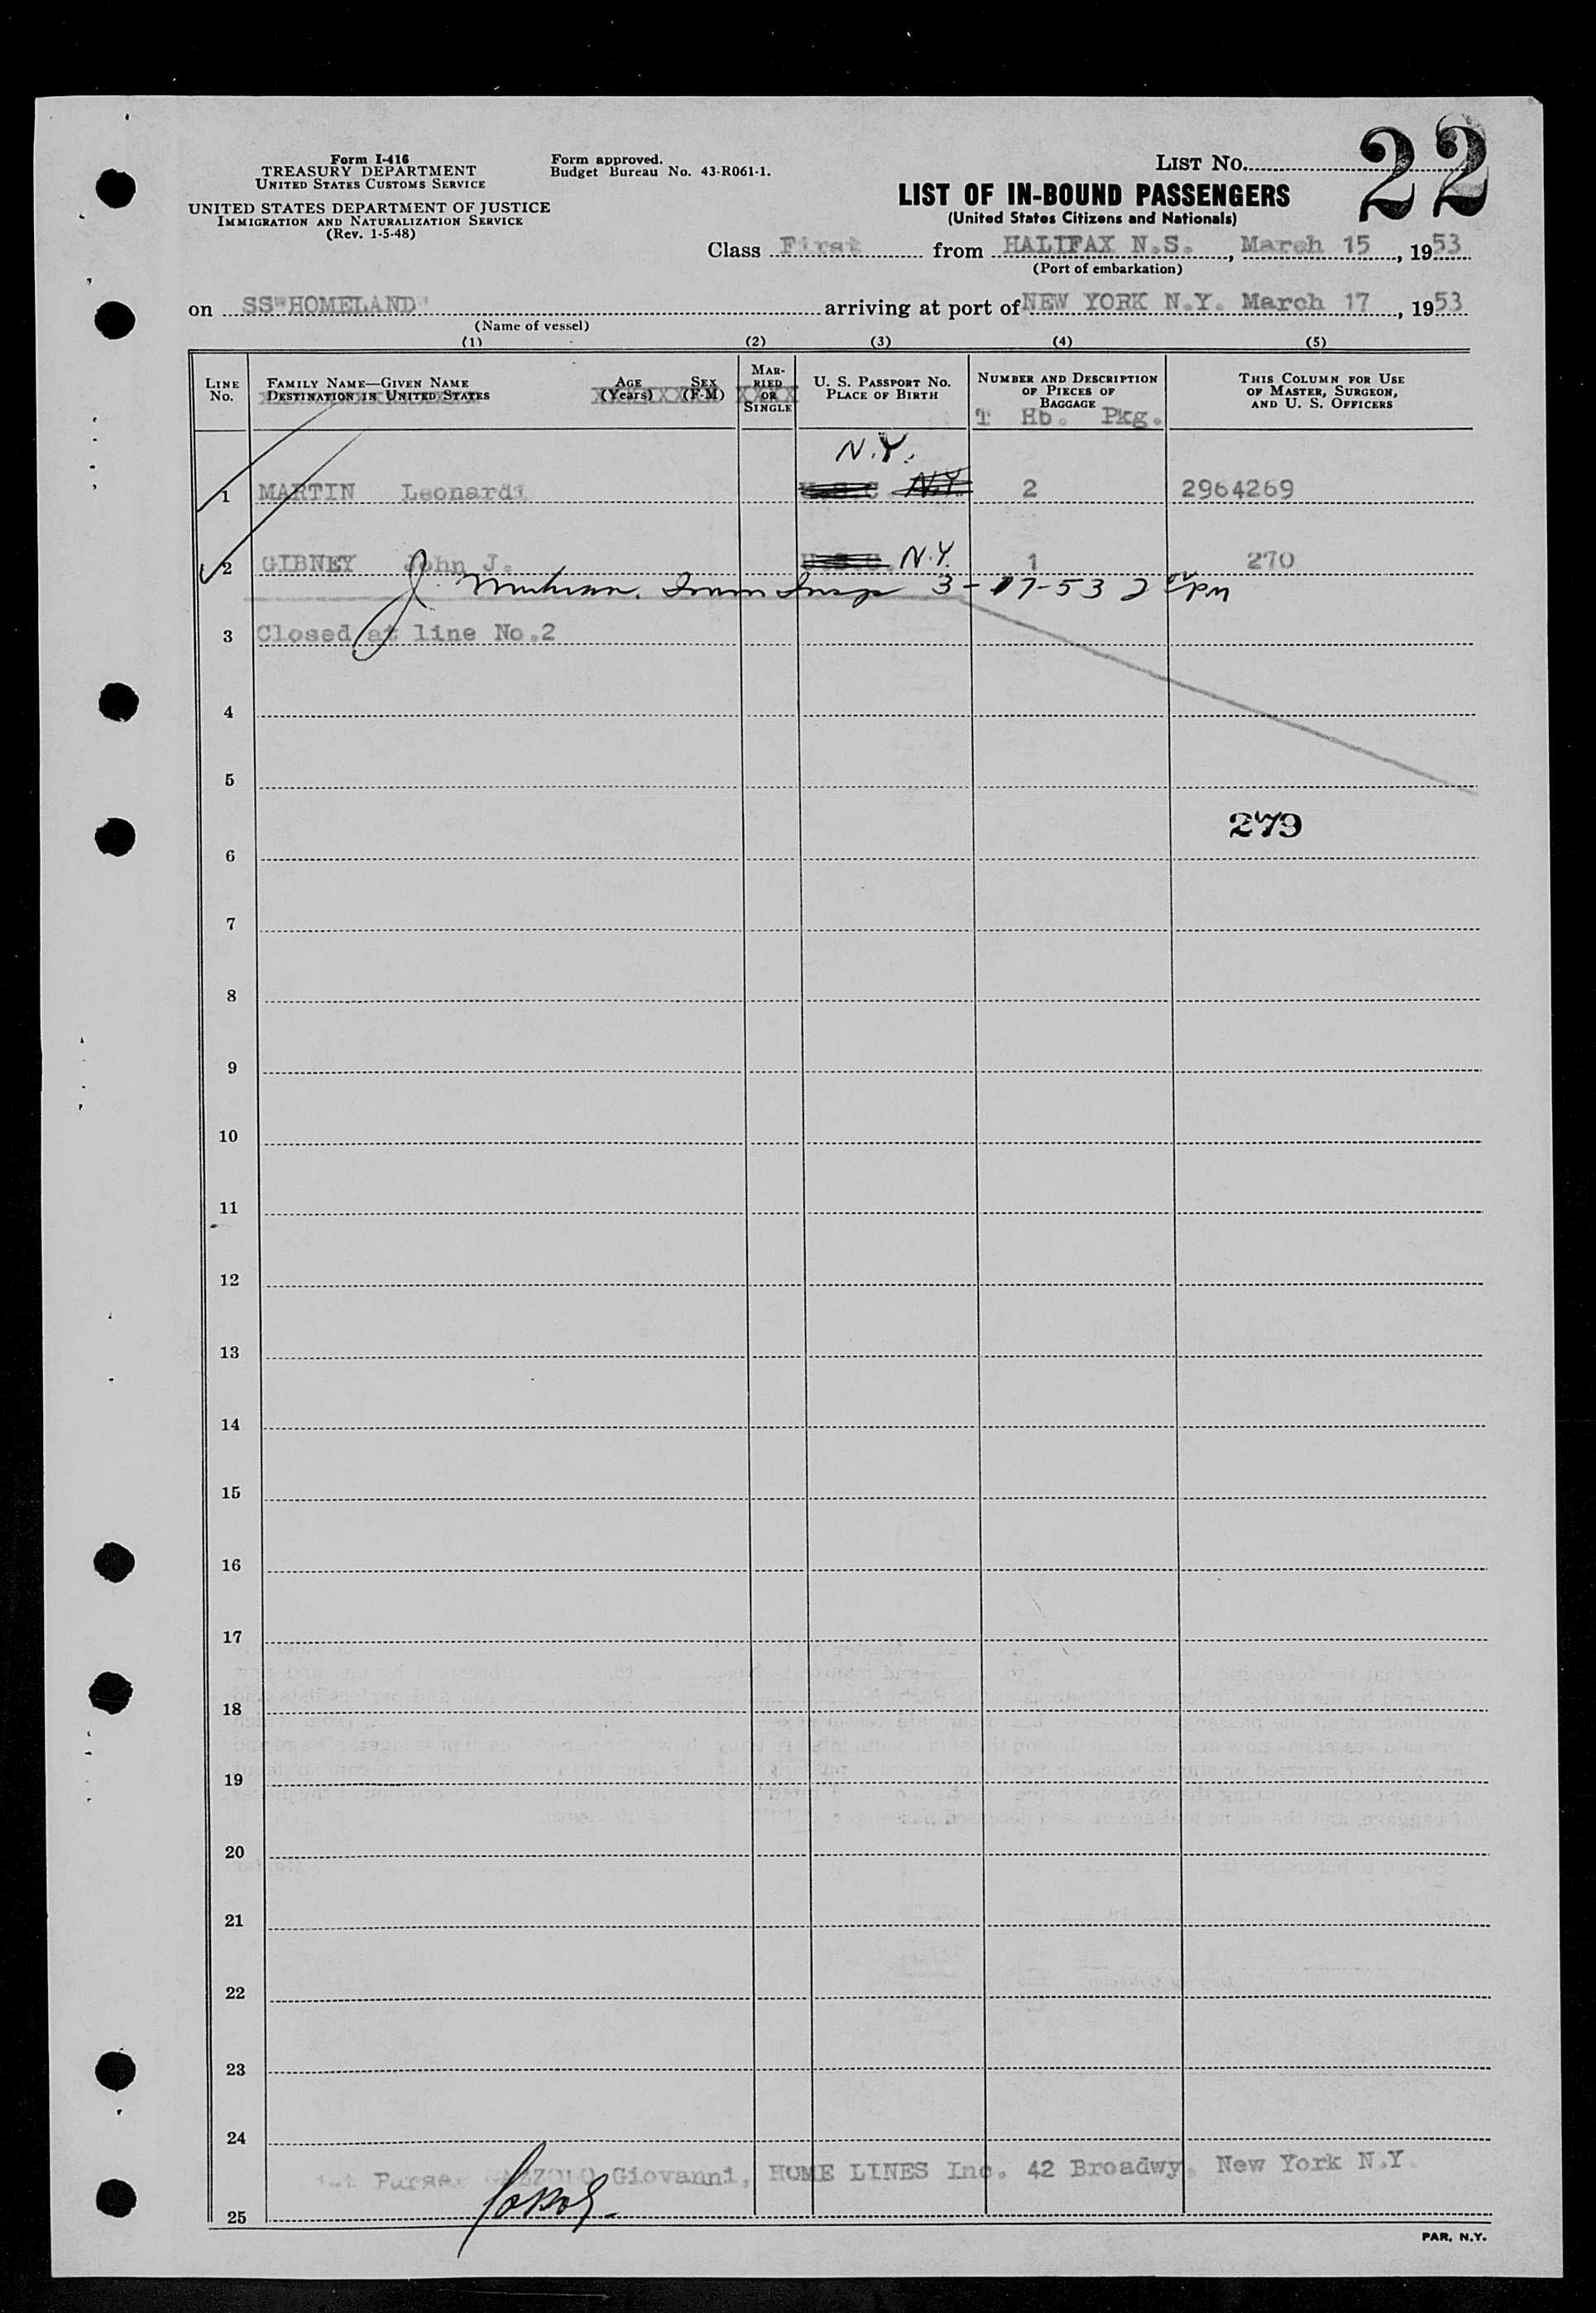 Form I-416
TREASURY DEPARTMENT
UNITED STATES CUSTOMS SERVICE
UNITED STATES DEPARTMENT OF JUSTICE
IMMIGRATION AND NATURALIZATION SERVICE
(Rev. 1-5-48)
Form approved.
Budget Bureau No. 43-R061-1.
LIST No. 22
LIST OF IN-BOUND PASSENGERS
(United States Citizens and Nationals)
Class First from HALIFAX N.S., March 15, 1953
(Port of embarkation)
on SS"HOMELAND" arriving at port of NEW YORK N.Y. March 17, 1953
(Name of vessel)
(1) (2) (3) (4) (5)
LINE No.
FAMILY NAME—GIVEN NAME
DESTINATION IN UNITED STATES
AGE (Years)
SEX (F-M)
MARRIED OR SINGLE
U. S. PASSPORT NO.
PLACE OF BIRTH
NUMBER AND DESCRIPTION OF PIECES OF BAGGAGE
T Hb. Pkg.
THIS COLUMN FOR USE OF MASTER, SURGEON, AND U. S. OFFICERS
N.Y.
1 MARTIN Leonardi U.S.C N.Y. 2 2964269
2 GIBNEY John J. U.S.C. N.Y. 1 270
J. Insp 3-17-53 2 PM
3 Closed at line No.2
4
5
279
6
7
8
9
10
11
12
13
14
15
16
17
18
19
20
21
22
23
24
Purser GAZZOLO Giovanni, HOME LINES Inc. 42 Broadwy. New York N.Y.
25
PAR, N.Y.